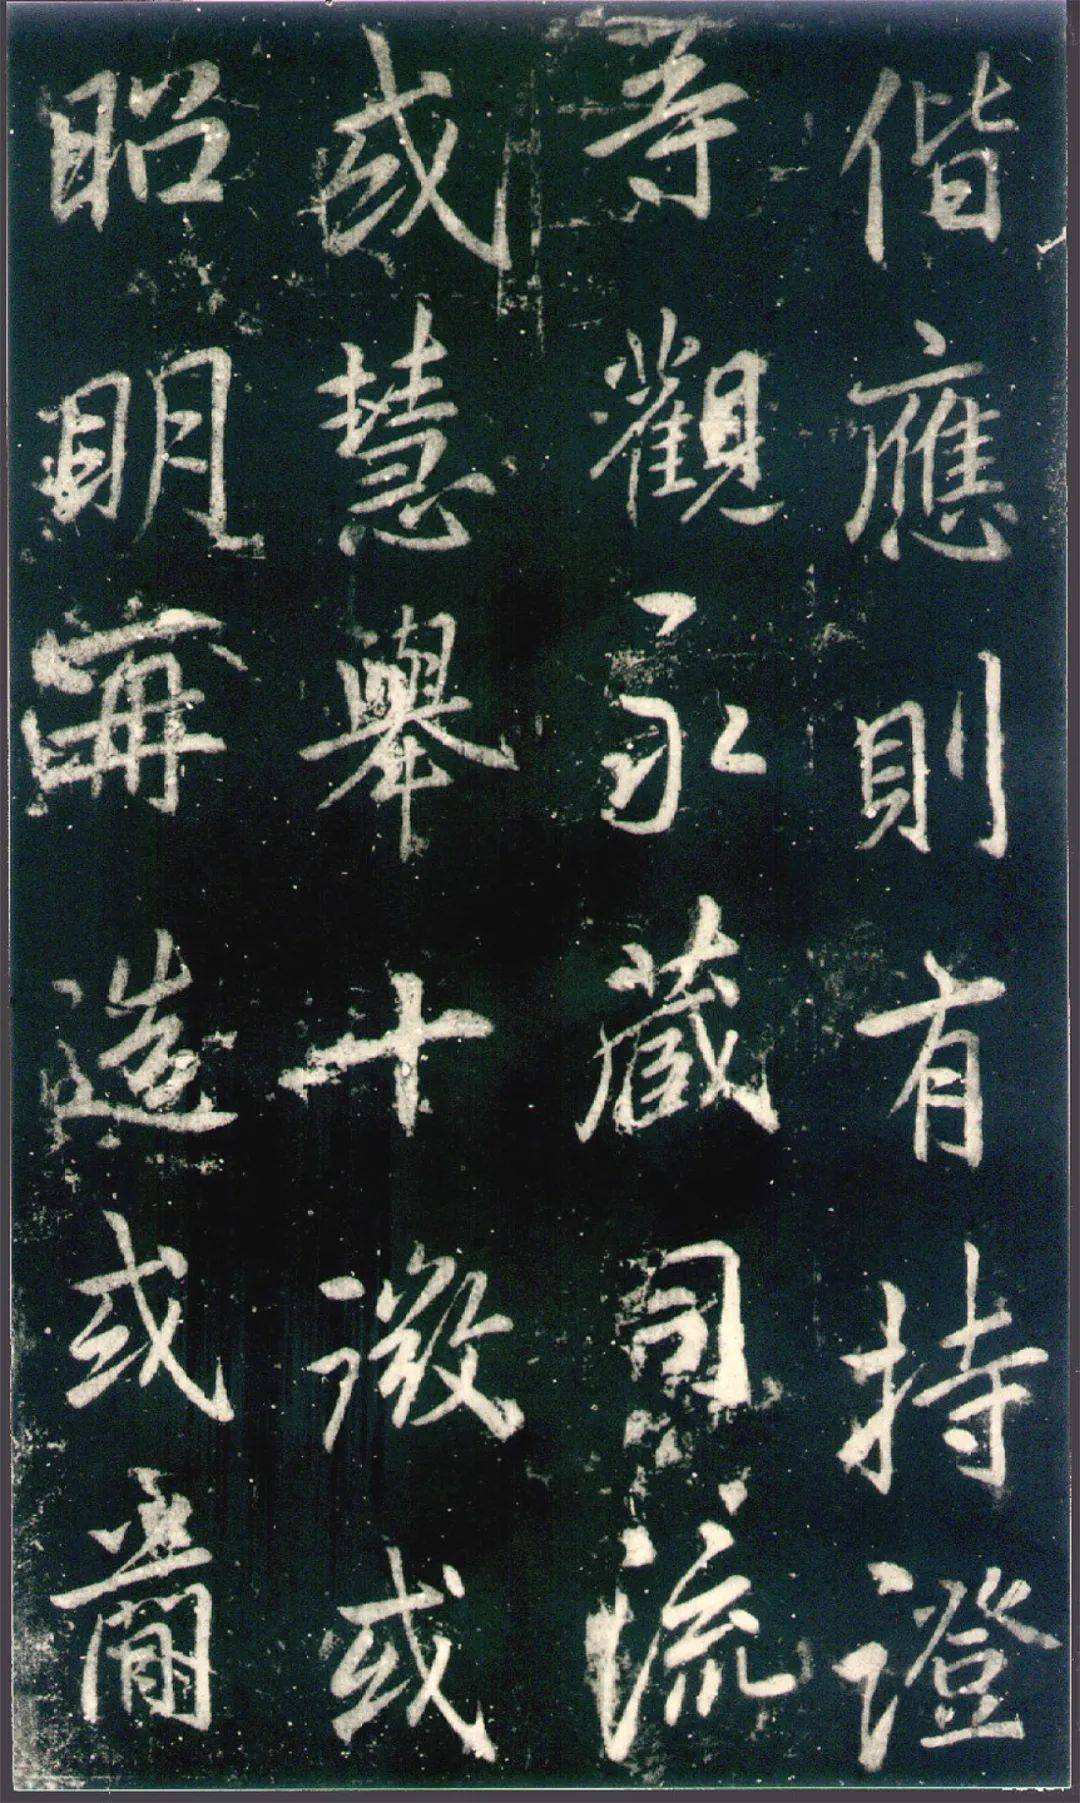 偕應則有持證
寺觀永藏司流
或慧舉十徵或
昭明再造或裔